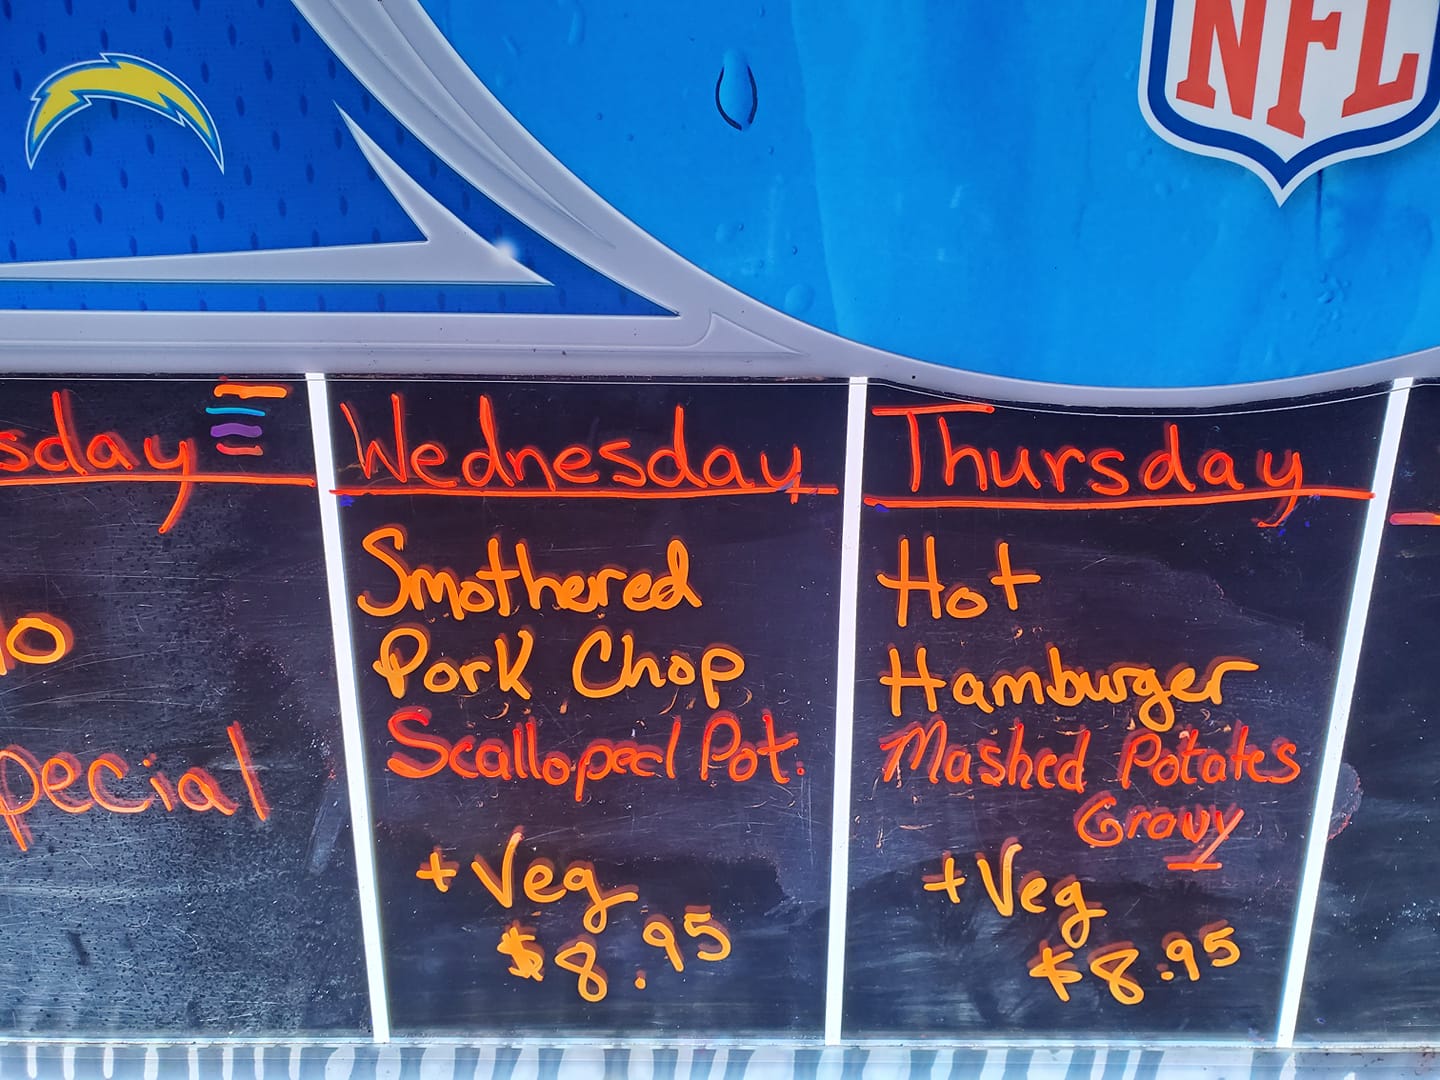 NFL
sday
10
pecial
Wednesday
Smothered
Pork Chop
Scalloped Pot.
+ Veg
$8.95
Thursday
Hot
Hamburger
Mashed Potates
Gravy
+ Veg
$8.95